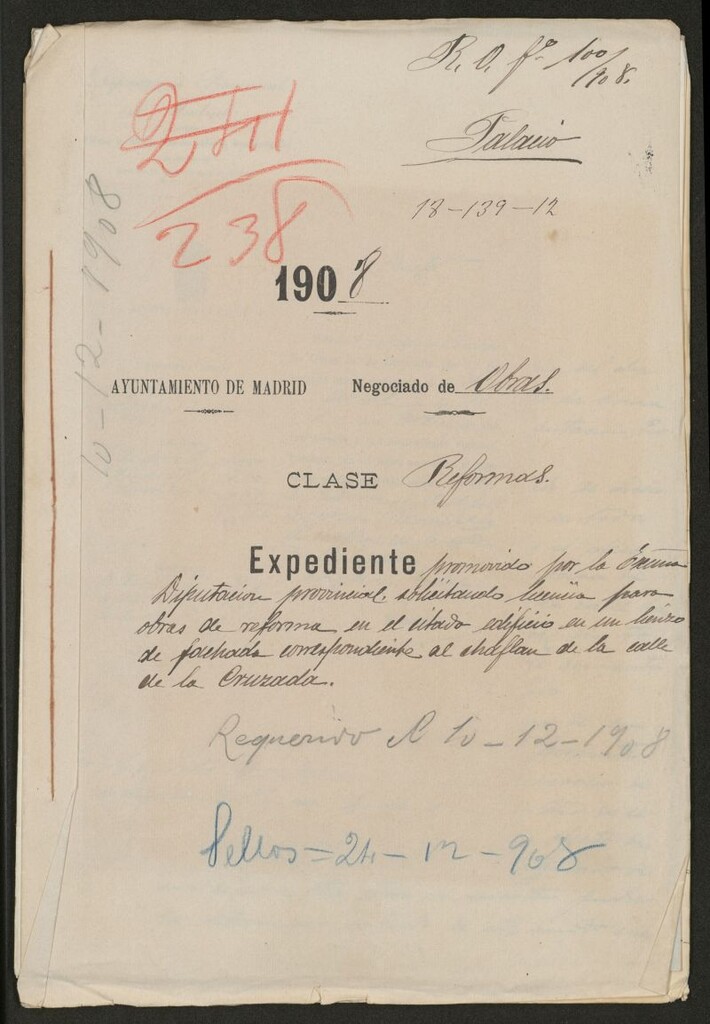 R. O. fº 100/908.
Palacio
18-139-12
238
1908
10-12-1908
AYUNTAMIENTO DE MADRID Negociado de Obras.
CLASE Reformas.
Expediente promovido por la Excma
Diputacion provincial solicitando licencia para
obras de reforma en el citado edificio en un lienzo
de fachada correspondiente al chaflan de la calle
de la Cruzada.
Requerido 10-12-1908
Sellos = 24-12-908